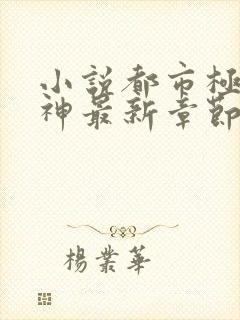 小説都市極
神最新章節
楊業華